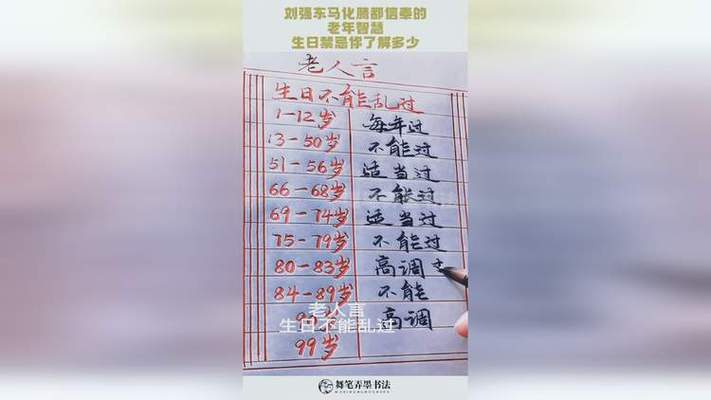 刘强东马化腾都信奉的
老年智慧
生日禁忌你了解多少
老人言
生日不能乱过
1-12岁 每年过
13-50岁 不能过
51-56岁 适当过
66-68岁 不能过
69-74岁 适当过
75-79岁 不能过
80-83岁 高调
84-89岁 不能
高调
99岁
老人言
生日不能乱过
舞笔弄墨书法